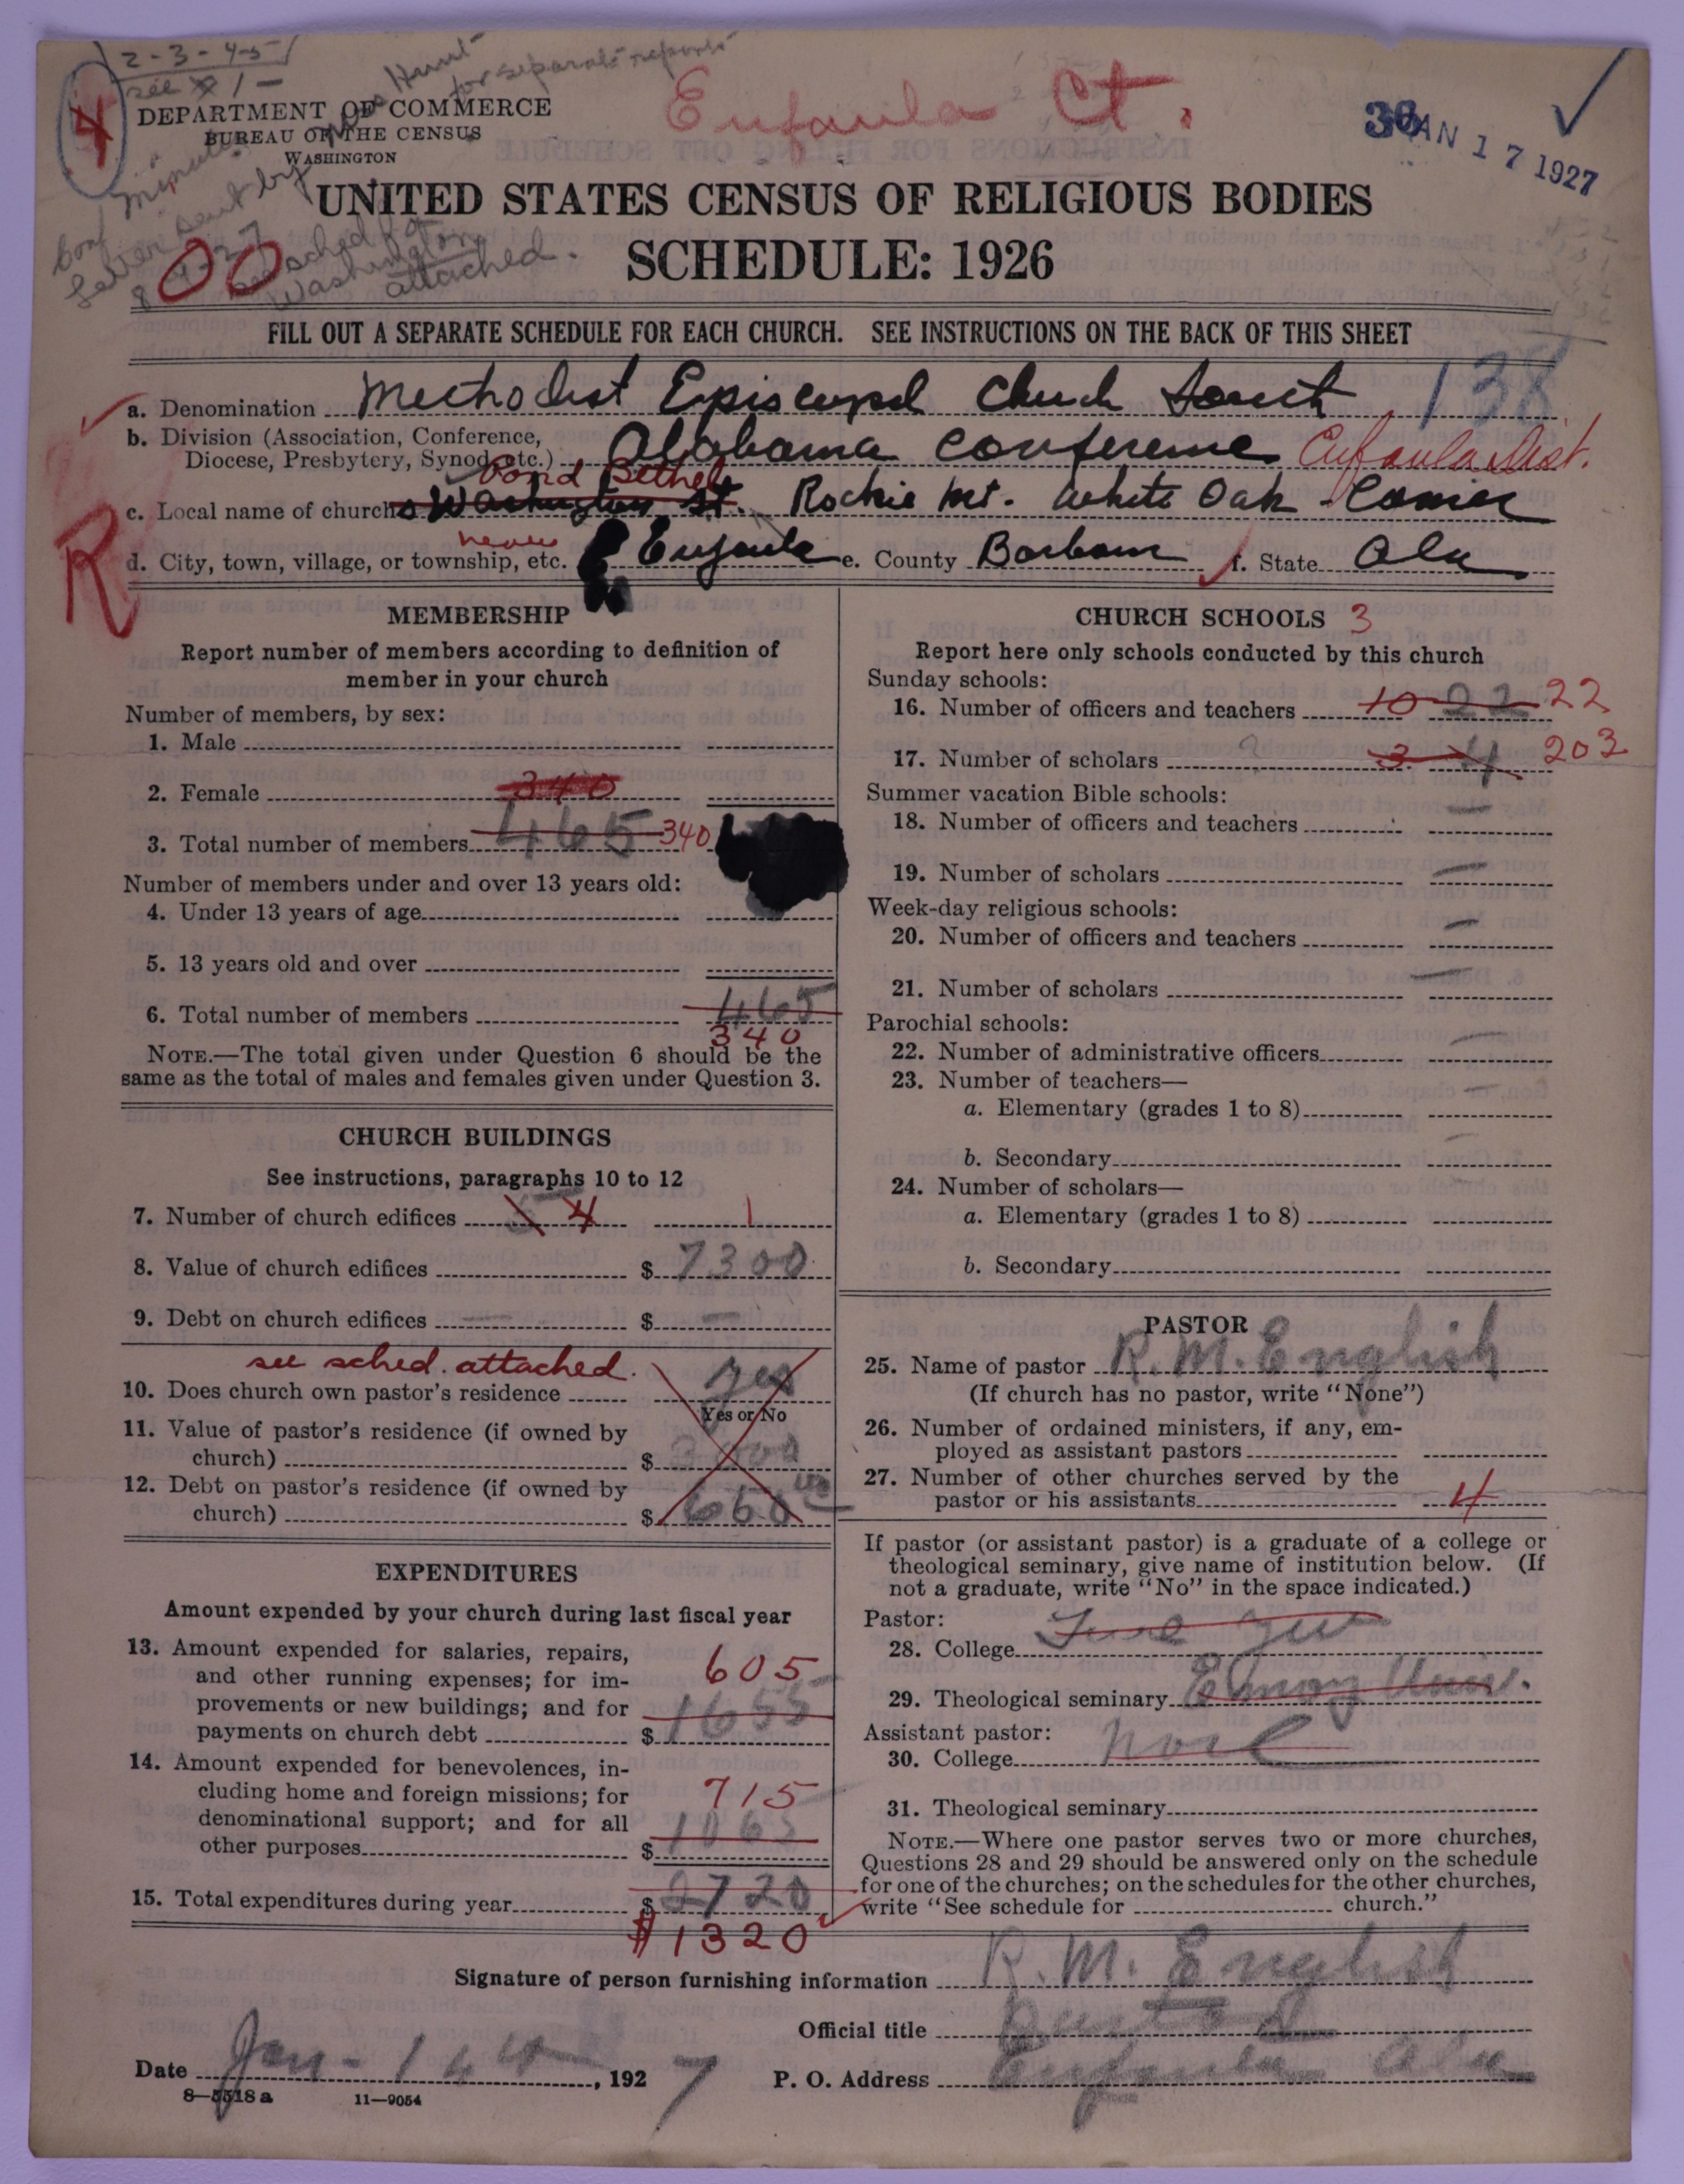 2-3-4-5
see 1 -
Hunt
for separate reports
4
DEPARTMENT OF COMMERCE
BUREAU OF THE CENSUS
WASHINGTON
Eufaula Ct.
36
JAN 17 1927
UNITED STATES CENSUS OF RELIGIOUS BODIES
SCHEDULE: 1926
00
attached.
FILL OUT A SEPARATE SCHEDULE FOR EACH CHURCH. SEE INSTRUCTIONS ON THE BACK OF THIS SHEET
a. Denomination Methodist Episcopal Church South 138
b. Division (Association, Conference,
Diocese, Presbytery, Synod, etc.) Alabama Conference Eufaula Dist.
Pond Bethel
c. Local name of church Washington St. Rockie Mt. White Oak - Comer
R
near
d. City, town, village, or township, etc. Eufaula e. County Barbour f. State Ala
MEMBERSHIP
Report number of members according to definition of
member in your church
Number of members, by sex:
1. Male
2. Female 340
3. Total number of members 465 340
Number of members under and over 13 years old:
4. Under 13 years of age
5. 13 years old and over
6. Total number of members 465
340
NOTE.—The total given under Question 6 should be the
same as the total of males and females given under Question 3.
CHURCH BUILDINGS
See instructions, paragraphs 10 to 12
7. Number of church edifices 4 1
8. Value of church edifices $ 7300
9. Debt on church edifices — $ —
see sched. attached.
10. Does church own pastor's residence yes
Yes or No
11. Value of pastor's residence (if owned by
church) $ 3000
12. Debt on pastor's residence (if owned by
church) $ 650
EXPENDITURES
Amount expended by your church during last fiscal year
13. Amount expended for salaries, repairs,
and other running expenses; for im-
provements or new buildings; and for
payments on church debt $ 1655
605
14. Amount expended for benevolences, in-
cluding home and foreign missions; for
denominational support; and for all
other purposes $ 1065
715
15. Total expenditures during year $ 2720
$1320
CHURCH SCHOOLS 3
Report here only schools conducted by this church
Sunday schools:
16. Number of officers and teachers 10 22 22
17. Number of scholars 3 4 203
Summer vacation Bible schools:
18. Number of officers and teachers —
19. Number of scholars —
Week-day religious schools:
20. Number of officers and teachers —
21. Number of scholars —
Parochial schools:
22. Number of administrative officers —
23. Number of teachers—
a. Elementary (grades 1 to 8) —
b. Secondary —
24. Number of scholars—
a. Elementary (grades 1 to 8)
b. Secondary
PASTOR
25. Name of pastor R. M. English
(If church has no pastor, write "None")
26. Number of ordained ministers, if any, em-
ployed as assistant pastors
27. Number of other churches served by the
pastor or his assistants 4
If pastor (or assistant pastor) is a graduate of a college or
theological seminary, give name of institution below. (If
not a graduate, write "No" in the space indicated.)
Pastor:
28. College
29. Theological seminary Emory Univ.
Assistant pastor:
30. College None
31. Theological seminary
NOTE.—Where one pastor serves two or more churches,
Questions 28 and 29 should be answered only on the schedule
for one of the churches; on the schedules for the other churches,
write "See schedule for church."
Signature of person furnishing information R. M. English
Official title Pastor
Date Jan - 14th, 1927 P. O. Address Eufaula Ala
8—5518 a 11—9054